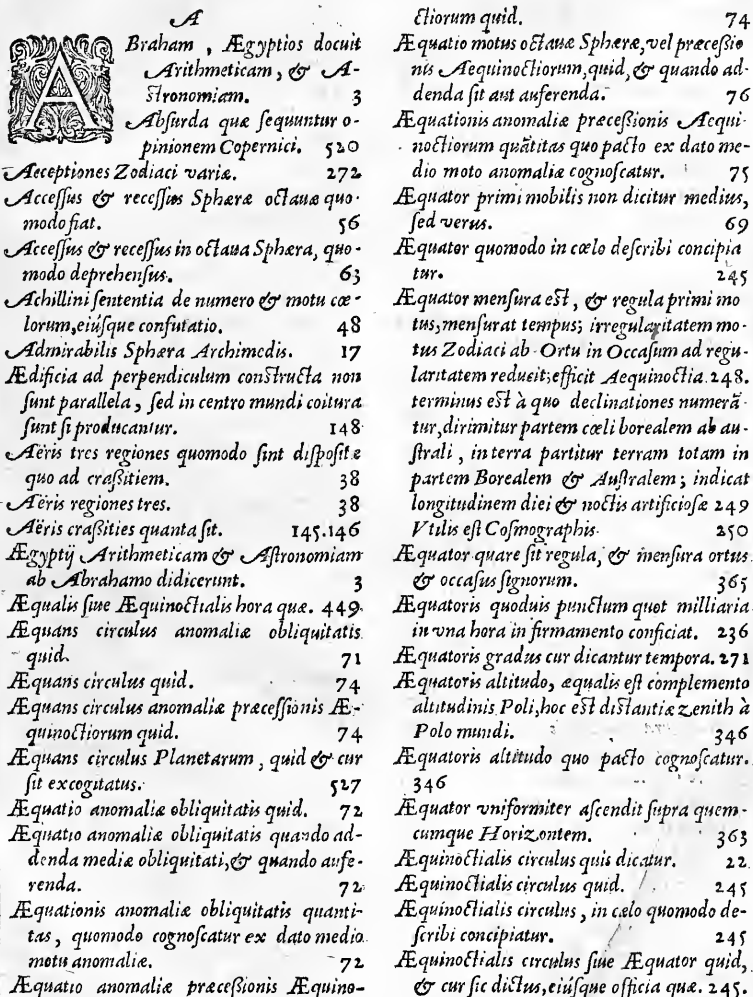 A
ABraham, Ægyptios docuit
Arithmeticam, & A-
stronomiam. 3
Absurda quæ sequuntur o-
pinionem Copernici. 520
Aeceptiones Zodiaci variæ. 272
Accessus & recessus Sphæræ octauæ quo-
modo fiat. 56
Accessus & recessus in octaua Sphæra, quo-
modo deprehensus. 63
Achillini sententia de numero & motu cæ-
lorum, eiúsque confutatio. 48
Admirabilis Sphæra Archimedis. 17
Ædificia ad perpendiculum constructa non
sunt parallela, sed in centro mundi coitura
sunt si producantur. 148
Aëris tres regiones quomodo sint dispositæ
quo ad crassitiem. 38
Aëris regiones tres. 38
Aëris crassities quanta sit. 145.146
Ægyptij Arithmeticam & Astronomiam
ab Abrahamo didicerunt. 3
Æqualis siue Æquinoctialis hora quæ. 449
Æquans circulus anomaliæ obliquitatis
quid. 71
Æquans circulus quid. 74
Æquans circulus anomaliæ præcessionis Æ-
quinoctiorum quid. 74
Æquans circulus Planetarum, quid & cur
sit excogitatus. 527
Æquatio anomaliæ obliquitatis quid. 72
Æquatio anomaliæ obliquitatis quando ad-
denda mediæ obliquitati, & quando aufe-
renda. 72
Æquationis anomaliæ obliquitatis quanti-
tas, quomodo cognoscatur ex dato medio
motu anomaliæ. 72
Æquatio anomaliæ præcessionis Æquino-
ctiorum quid. 74
Æquatio motus octauæ Sphæræ, vel præcessio
nis Aequinoctiorum, quid, & quando ad-
denda sit aut auferenda. 76
Æquationis anomaliæ præcessionis Aequi-
noctiorum quãtitas quo pacto ex dato me-
dio moto anomaliæ cognoscatur. 75
Æquator primi mobilis non dicitur medius,
sed verus. 69
Æquator quomodo in cœlo describi concipia
tur. 245
Æquator mensura est, & regula primi mo
tus, mensurat tempus; irregularitatem mo-
tus Zodiaci ab Ortu in Occasum ad regu-
laritatem reducit; efficit Aequinoctia. 248.
terminus est à quo declinationes numerã-
tur, dirimitur partem cæli borealem ab au-
strali, in terra partitur terram totam in
partem Borealem & Australem; indicat
longitudinem diei & noctis artificiosæ 249
Vtilis est Cosmographis 250
Æquator quare sit regula, & mensura ortus
& occasus signorum. 365
Æquatoris quoduis punctum quot milliaria
in vna hora in firmamento conficiat. 236
Æquatoris gradus cur dicantur tempora. 271
Æquatoris altitudo, æqualis est complemento
altitudinis Poli, hoc est distantiæ zenith à
Polo mundi. 346
Æquatoris altitudo quo pacto cognoscatur.
346
Æquator vniformiter ascendit supra quem-
cumque Horizontem. 363
Æquinoctialis circulus quis dicatur. 22
Æquinoctialis circulus quid. 245
Æquinoctialis circulus, in cælo quomodo de-
scribi concipiatur. 245
Æquinoctialis circulus siue Æquator quid,
& cur sic dictus, eiúsque officia quæ. 245.